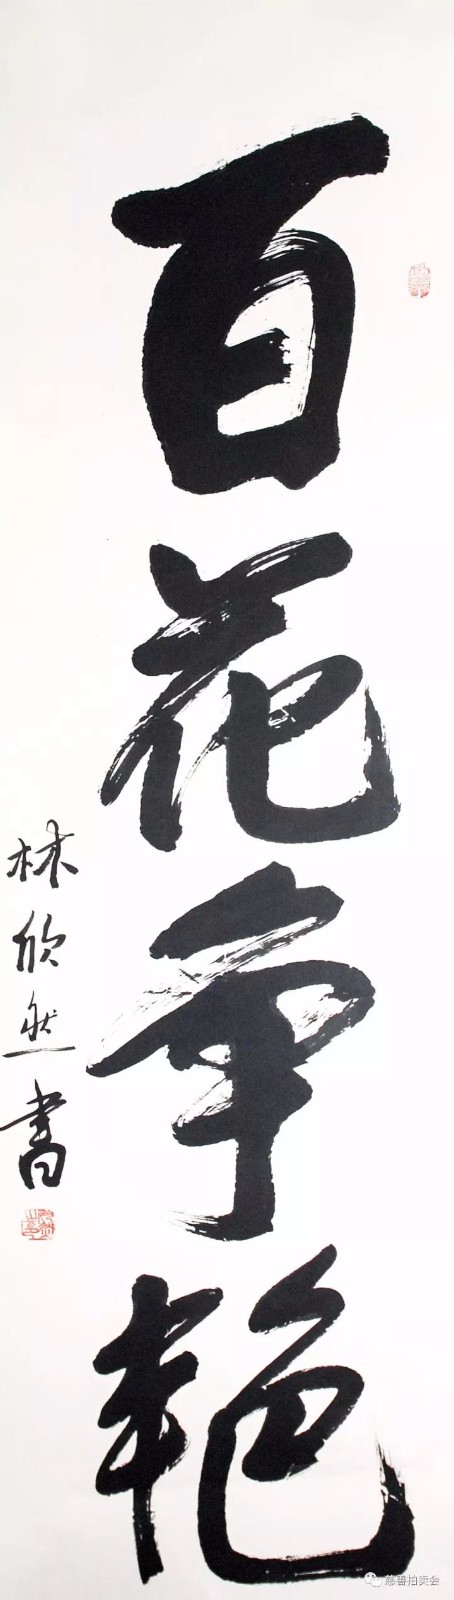 百花争艳
林欣然书
慈善拍卖会